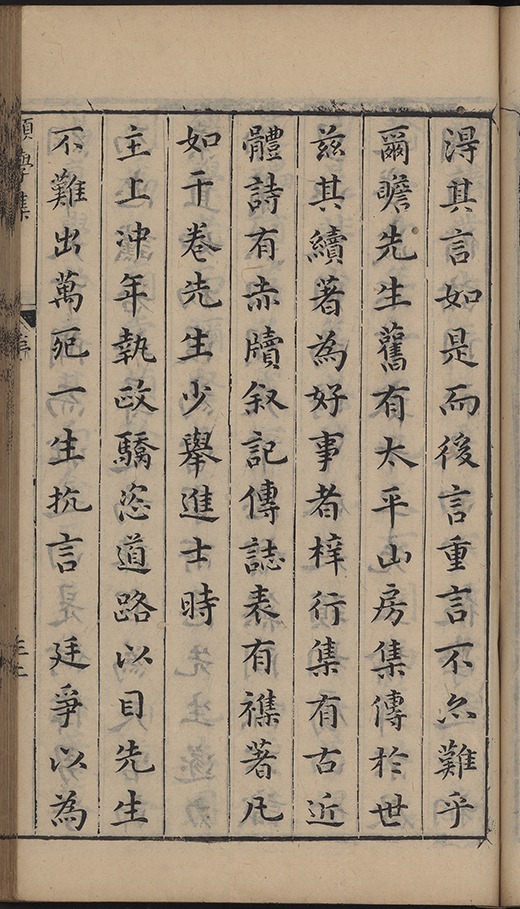 淂其言如是而後言重言不亦難乎
爾瞻先生舊有太平山房集傳於世
茲其續著為好事者梓行集有古近
體詩有赤牘叙記傳誌表有襍著凡
如干卷先生少舉進士時
主上冲年執政驕恣道路以目先生
不難出萬死一生抗言 廷爭以為
願學集
序